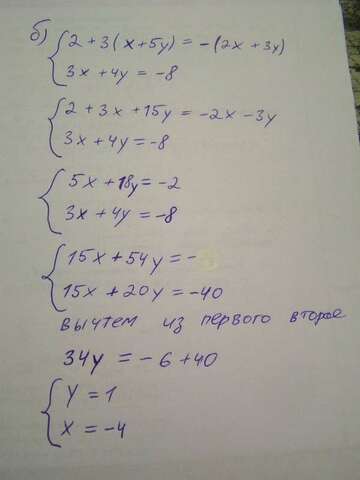 б) 2 + 3(x + 5y) = -(2x + 3y)
3x + 4y = -8
2 + 3x + 15y = -2x - 3y
3x + 4y = -8
5x + 18y = -2
3x + 4y = -8
15x + 54y = -
15x + 20y = -40
вычтем из первого второе
34y = -6 + 40
y = 1
x = -4